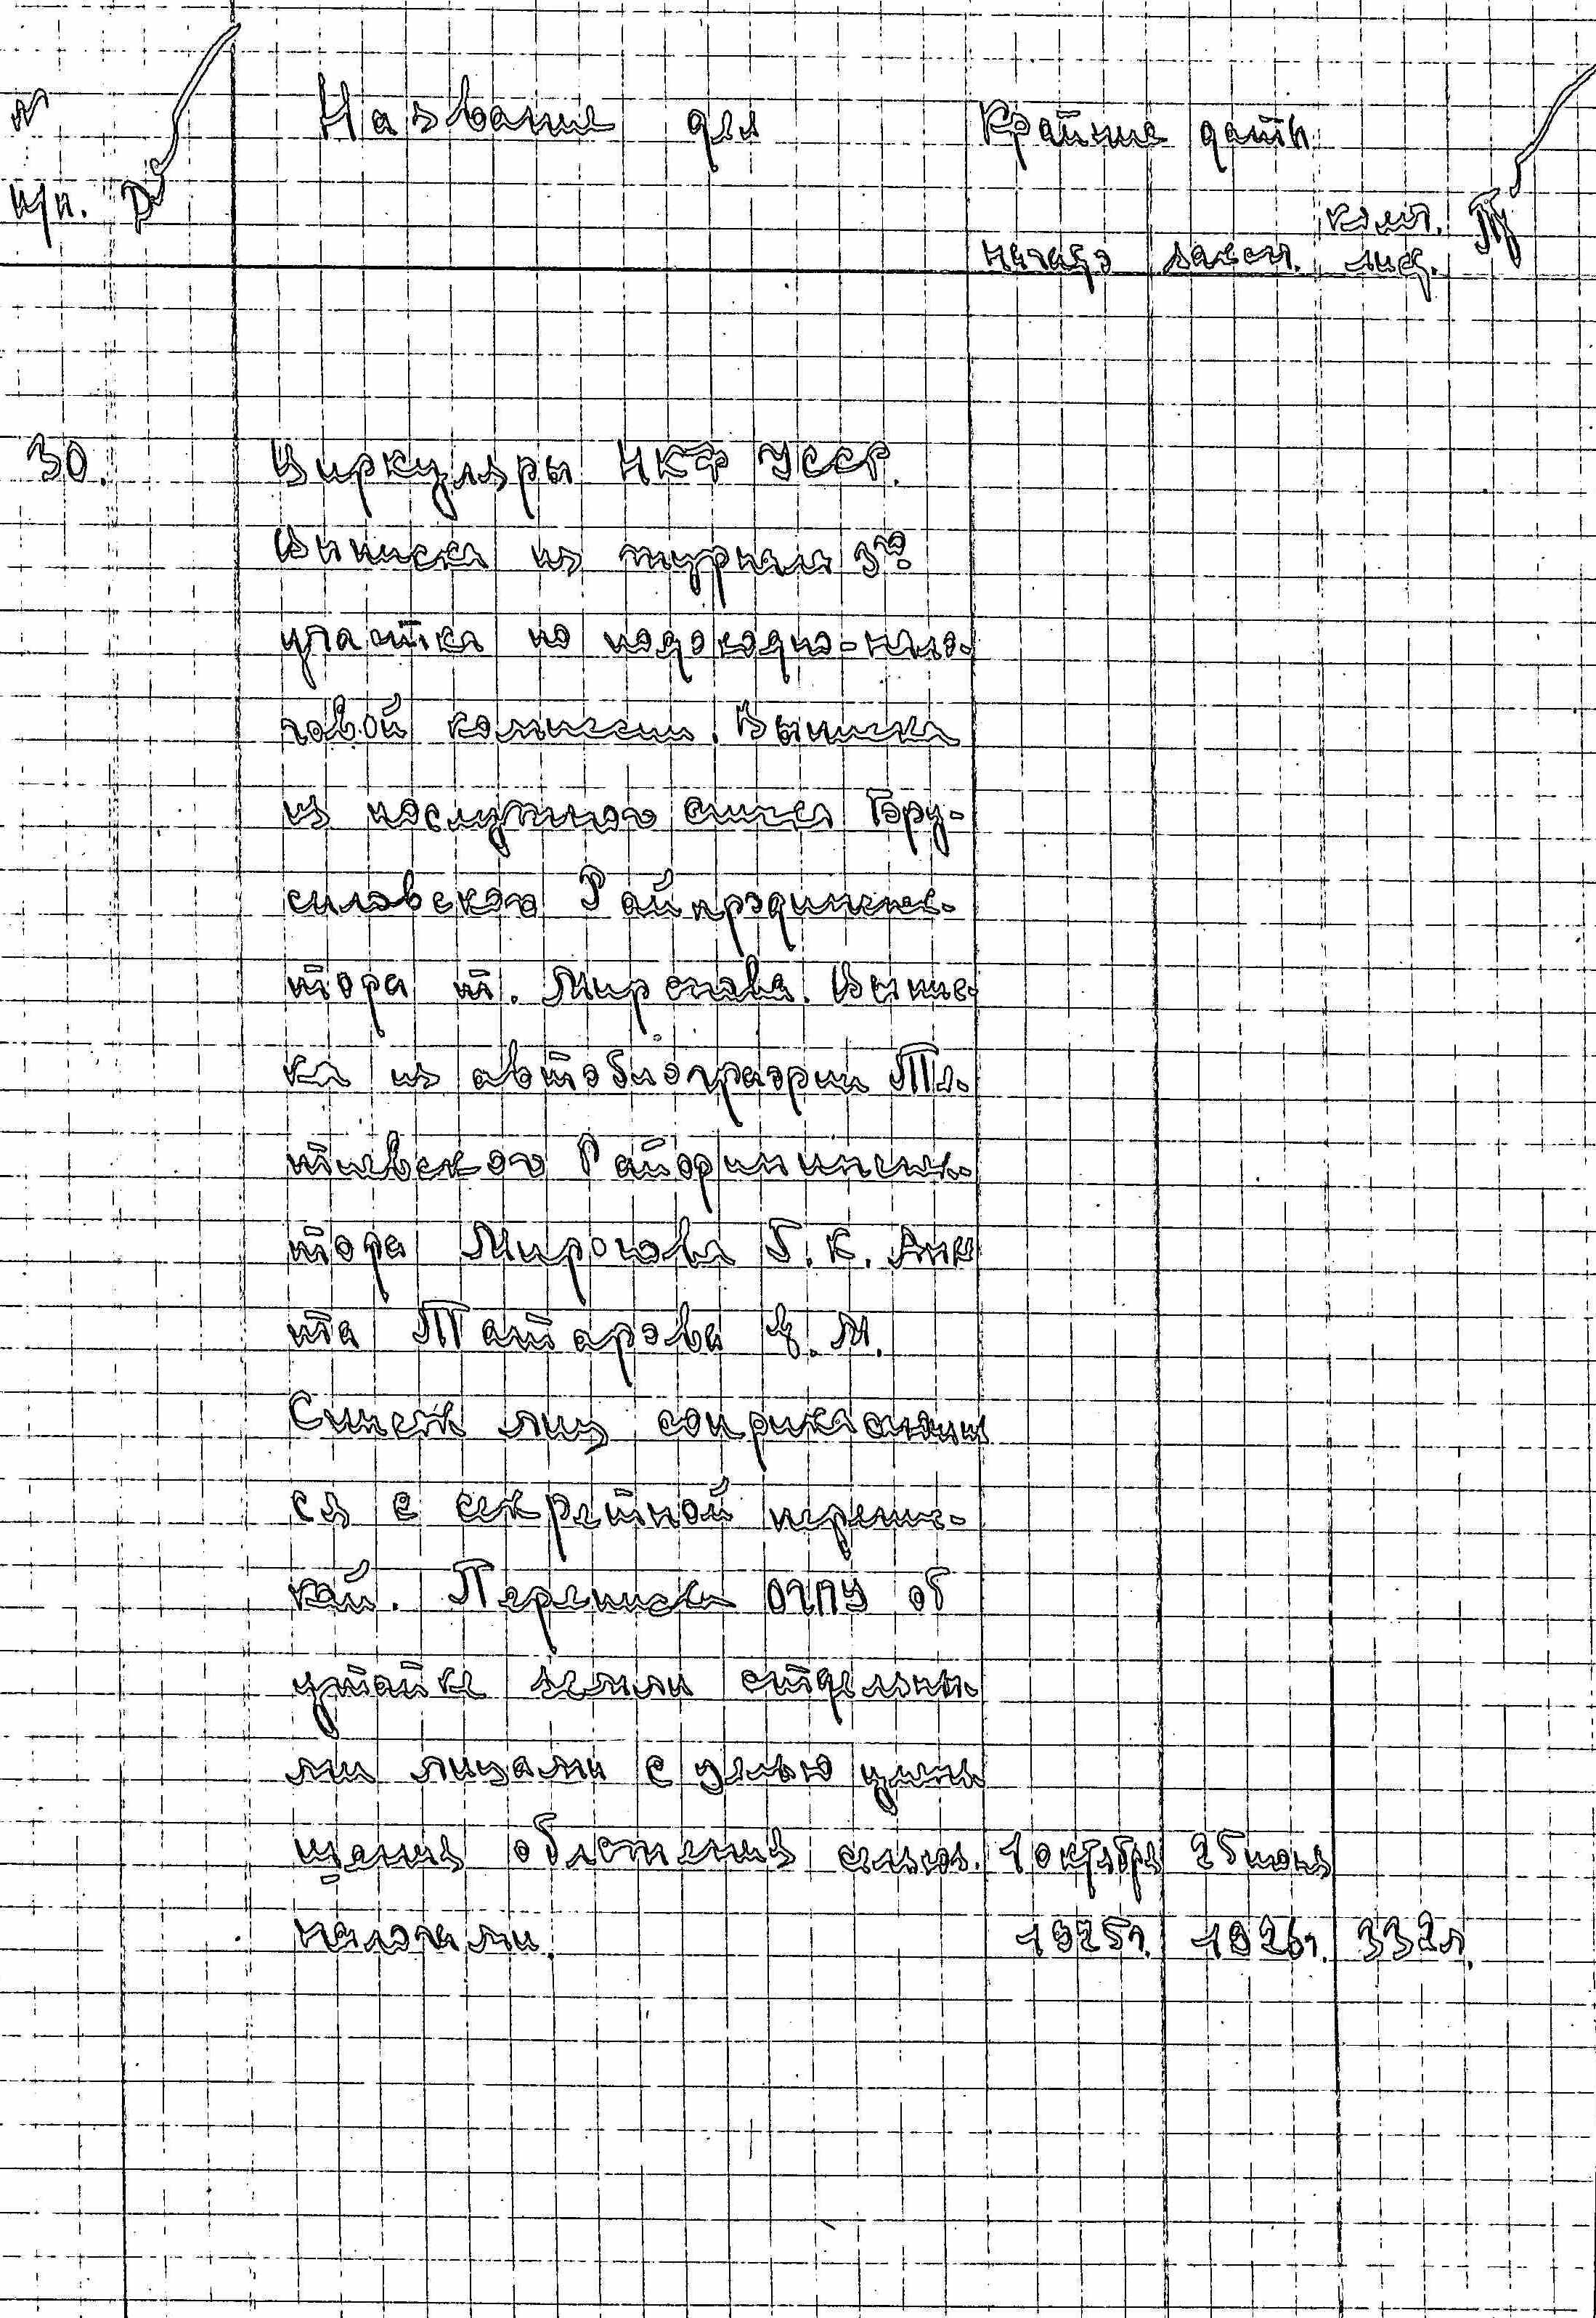 № Название дел Крайние даты
п/п. колич.
начало законч. лист.
30. Циркуляры НКФ УССР.
Выписка из журнала 3го
участка по подоходно-нало-
говой комиссии. Выписка
из послужного списка Бру-
силовского Райпродинспек-
тора т. Миронова. Выпис-
ка из автобиографии Те-
тиевского Райфининспек-
тора Миронова Г. К. Анке
та Татарова М.
Список лиц соприкасающих
ся с секретной перепис-
кой. Переписка ОГПУ об
утайке земли отдельны-
ми лицами с целью умень
щения обложения сельхоз. 1 октября 25 июня
налогами. 1925г. 1926г. 332л.